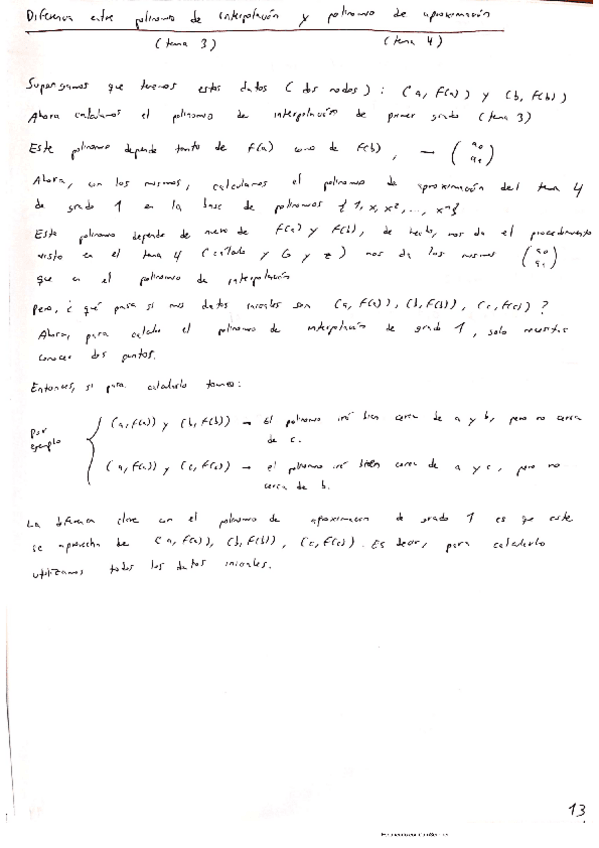 Diferencia entre polinomio de interpolación y polinomio de aproximación
(tema 3) (tema 4)
Supongamos que tenemos estos datos (dos nodos): (a, f(a)) y (b, f(b))
Ahora calculamos el polinomio de interpolación de primer grado (tema 3)
Este polinomio depende tanto de f(a) como de f(b), → (a0 a1)
Ahora, con los mismos, calculamos el polinomio de aproximación del tema 4
de grado 1 en la base de polinomios {1, x, x², ..., xⁿ}
Este polinomio depende de nuevo de f(a) y f(b), de hecho, nos da el procedimiento
visto en el tema 4 (calculado y G y z) nos da los mismos (a0 a1)
que en el polinomio de interpolación
Pero, ¿qué pasa si mis datos iniciales son (a, f(a)), (b, f(b)), (c, f(c))?
Ahora, para calcular el polinomio de interpolación de grado 1, solo necesitas
conocer dos puntos.
Entonces, si para calcularlo tomo:
por ejemplo
(a, f(a)) y (b, f(b)) → el polinomio irá bien cerca de a y b, pero no cerca
de c.
(a, f(a)) y (c, f(c)) → el polinomio irá bien cerca de a y c, pero no
cerca de b.
La diferencia clave con el polinomio de aproximación de grado 1 es que este
se aprovecha de (a, f(a)), (b, f(b)), (c, f(c)). Es decir, para calcularlo
utilizamos todos los datos iniciales.
13